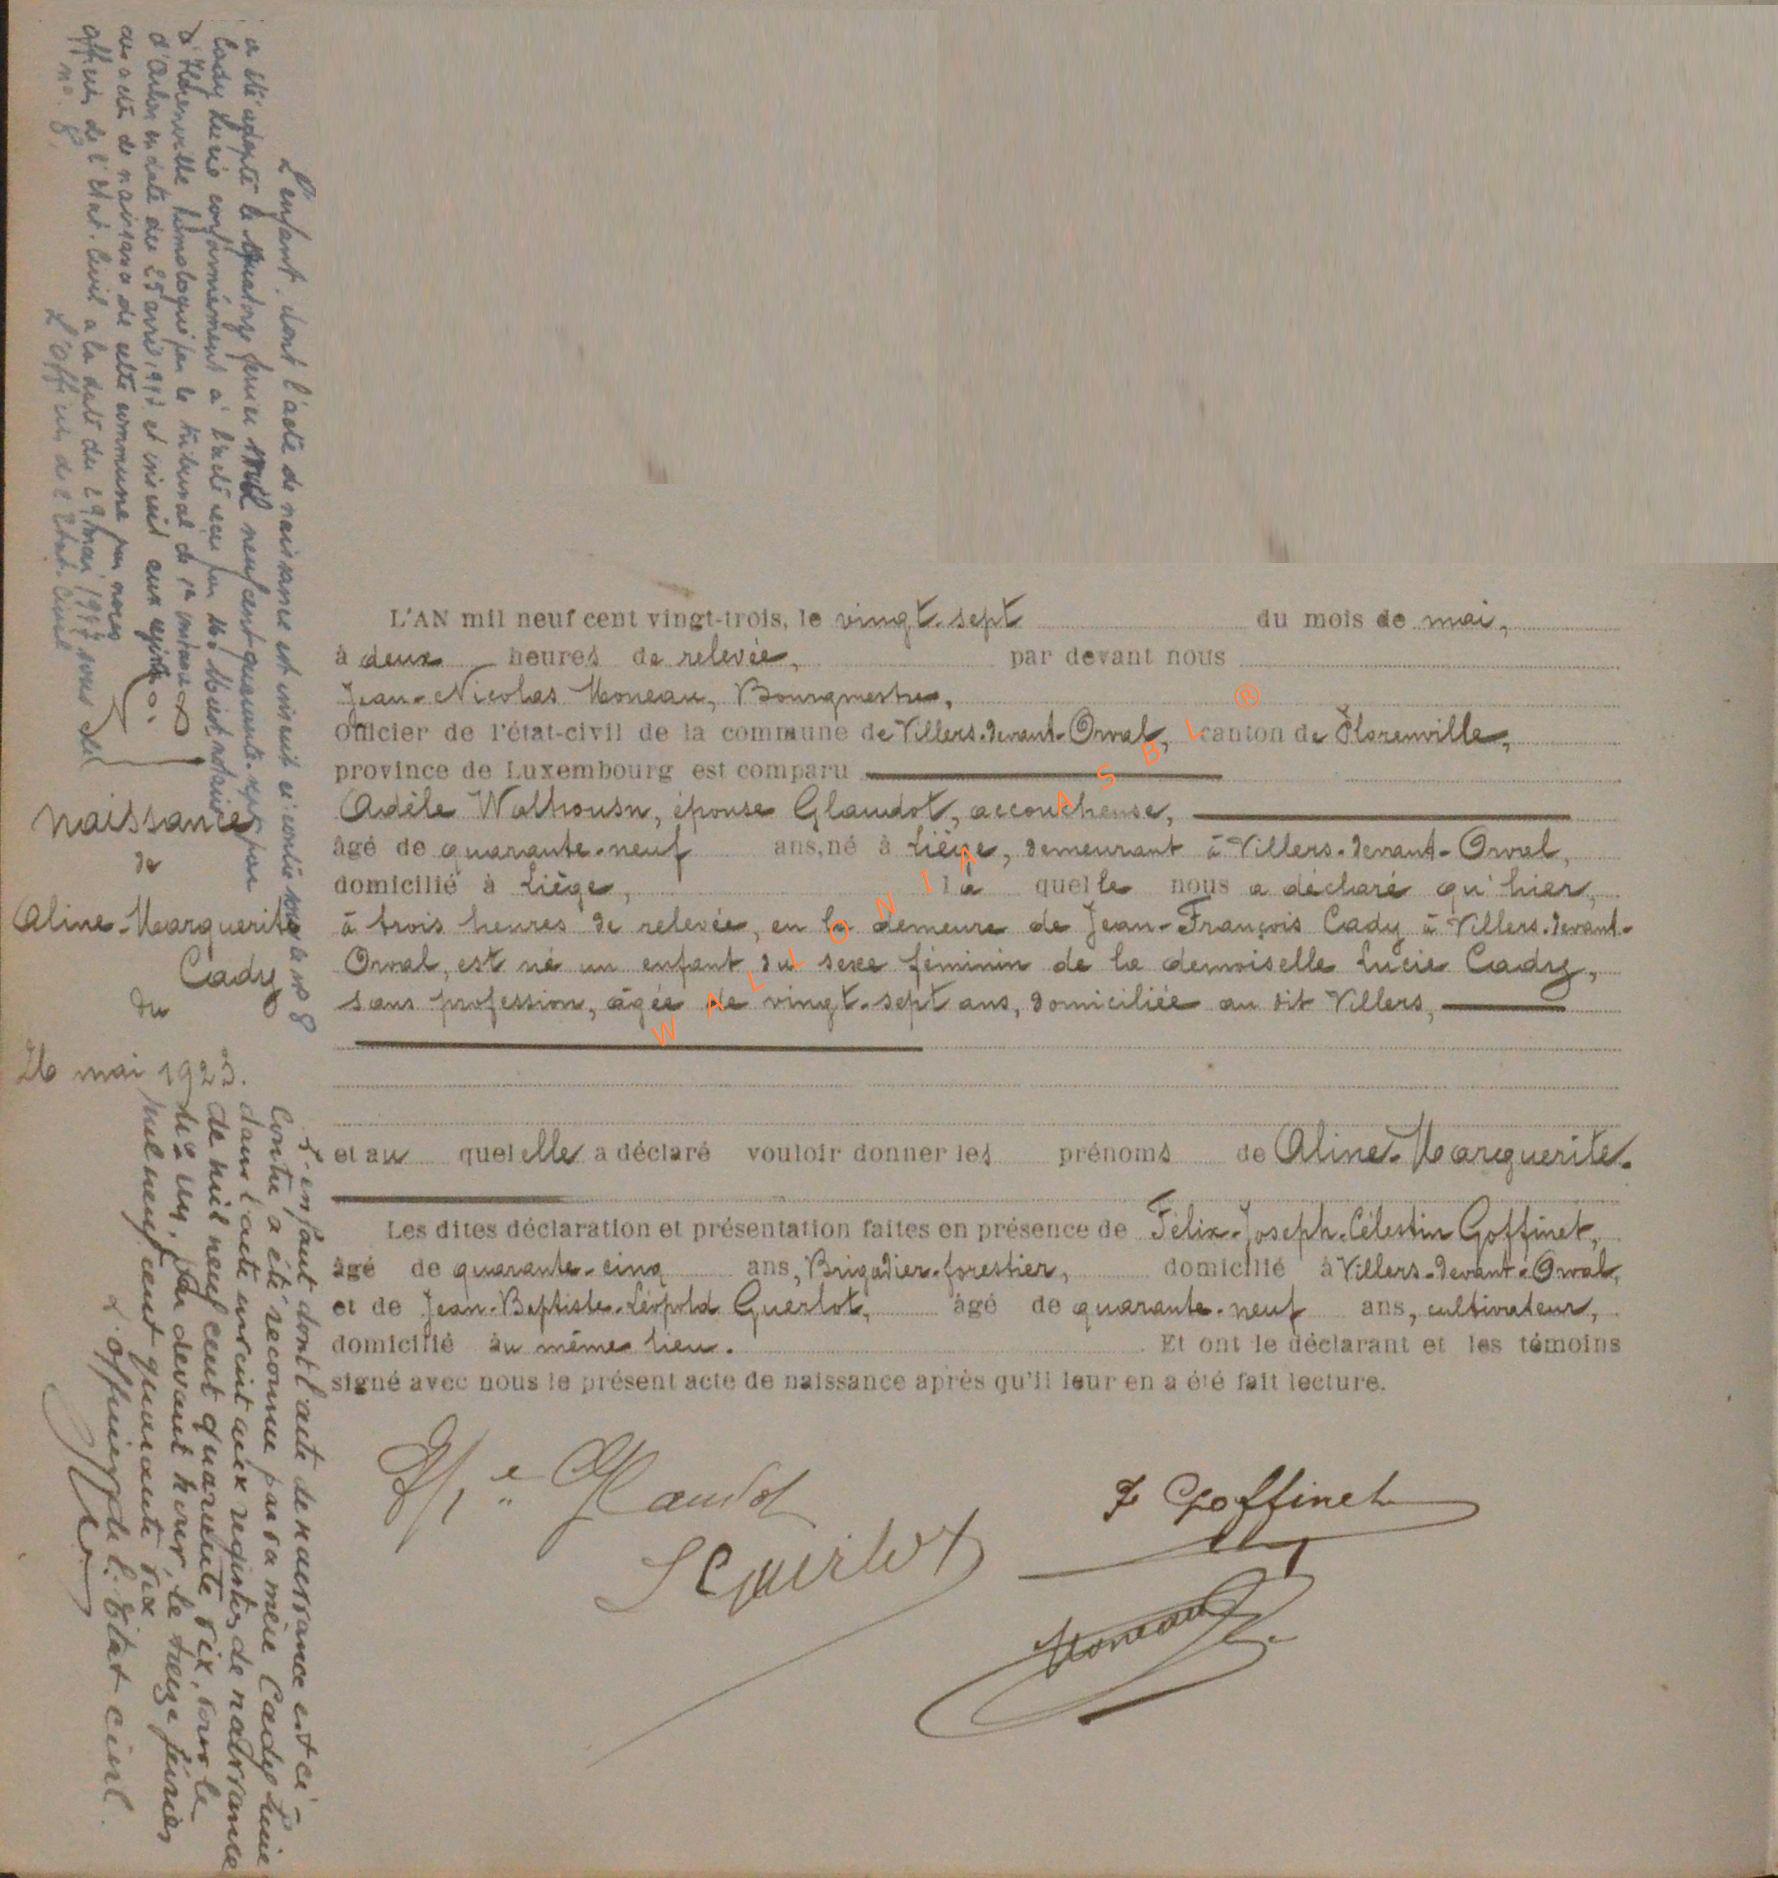 L'enfant dont l'acte de naissance est inscrit ci-contre sous le no 8
a été adopté le quatorze février mil neuf cent quarante-sept par
Cady Lucie conformément à l'acte reçu par Mo notaire
à Florenville homologué par le tribunal de 1re instance
d'Arlon en date du 25 avril 1947 et inscrit aux registres
aux actes de naissance de cette commune par nous
officier de l'Etat-Civil à la date du 29 mai 1947 sous le
no 8.
L'Officier de l'Etat-Civil
Naissance
de
Aline-Marguerite
Cady
du
26 mai 1923.
L'enfant dont l'acte de naissance est ci-
contre a été reconnu par sa mère Cady Lucie
dans l'acte inscrit aux registres de naissance
de mil neuf cent quarante six, sous le
par devant nous, le treize février
mil neuf cent quarante six
L'officier de l'Etat civil.
L'AN mil neuf cent vingt-trois, le vingt-sept du mois de mai,
à deux heures de relevée, par devant nous
Jean-Nicolas Moneau, Bourgmestre,
Officier de l'état-civil de la commune de Villers-devant-Orval, canton de Florenville,
province de Luxembourg est comparu
Adèle Walhousn, épouse Glaudot, accoucheuse,
âgé de quarante-neuf ans, né à Liège, demeurant à Villers-devant-Orval,
domicilié à Liège, la quelle nous a déclaré qu'hier,
à trois heures de relevée, en la demeure de Jean-François Cady à Villers-devant-
Orval, est né un enfant du sexe féminin de la demoiselle Lucie Cady,
sans profession, âgée de vingt-sept ans, domiciliée au dit Villers,
et au quel elle a déclaré vouloir donner les prénoms de Aline-Marguerite.
Les dites déclaration et présentation faites en présence de Félix-Joseph-Célestin Goffinet,
âgé de quarante-cinq ans, Brigadier-forestier, domicilié à Villers-devant-Orval,
et de Jean-Baptiste-Léopold Guerlot, âgé de quarante-neuf ans, cultivateur,
domicilié au même lieu. Et ont le déclarant et les témoins
signé avec nous le présent acte de naissance après qu'il leur en a été fait lecture.
Glaudot
F Goffinet
L Guerlot
Moneau
WALLONIA ASBL ®